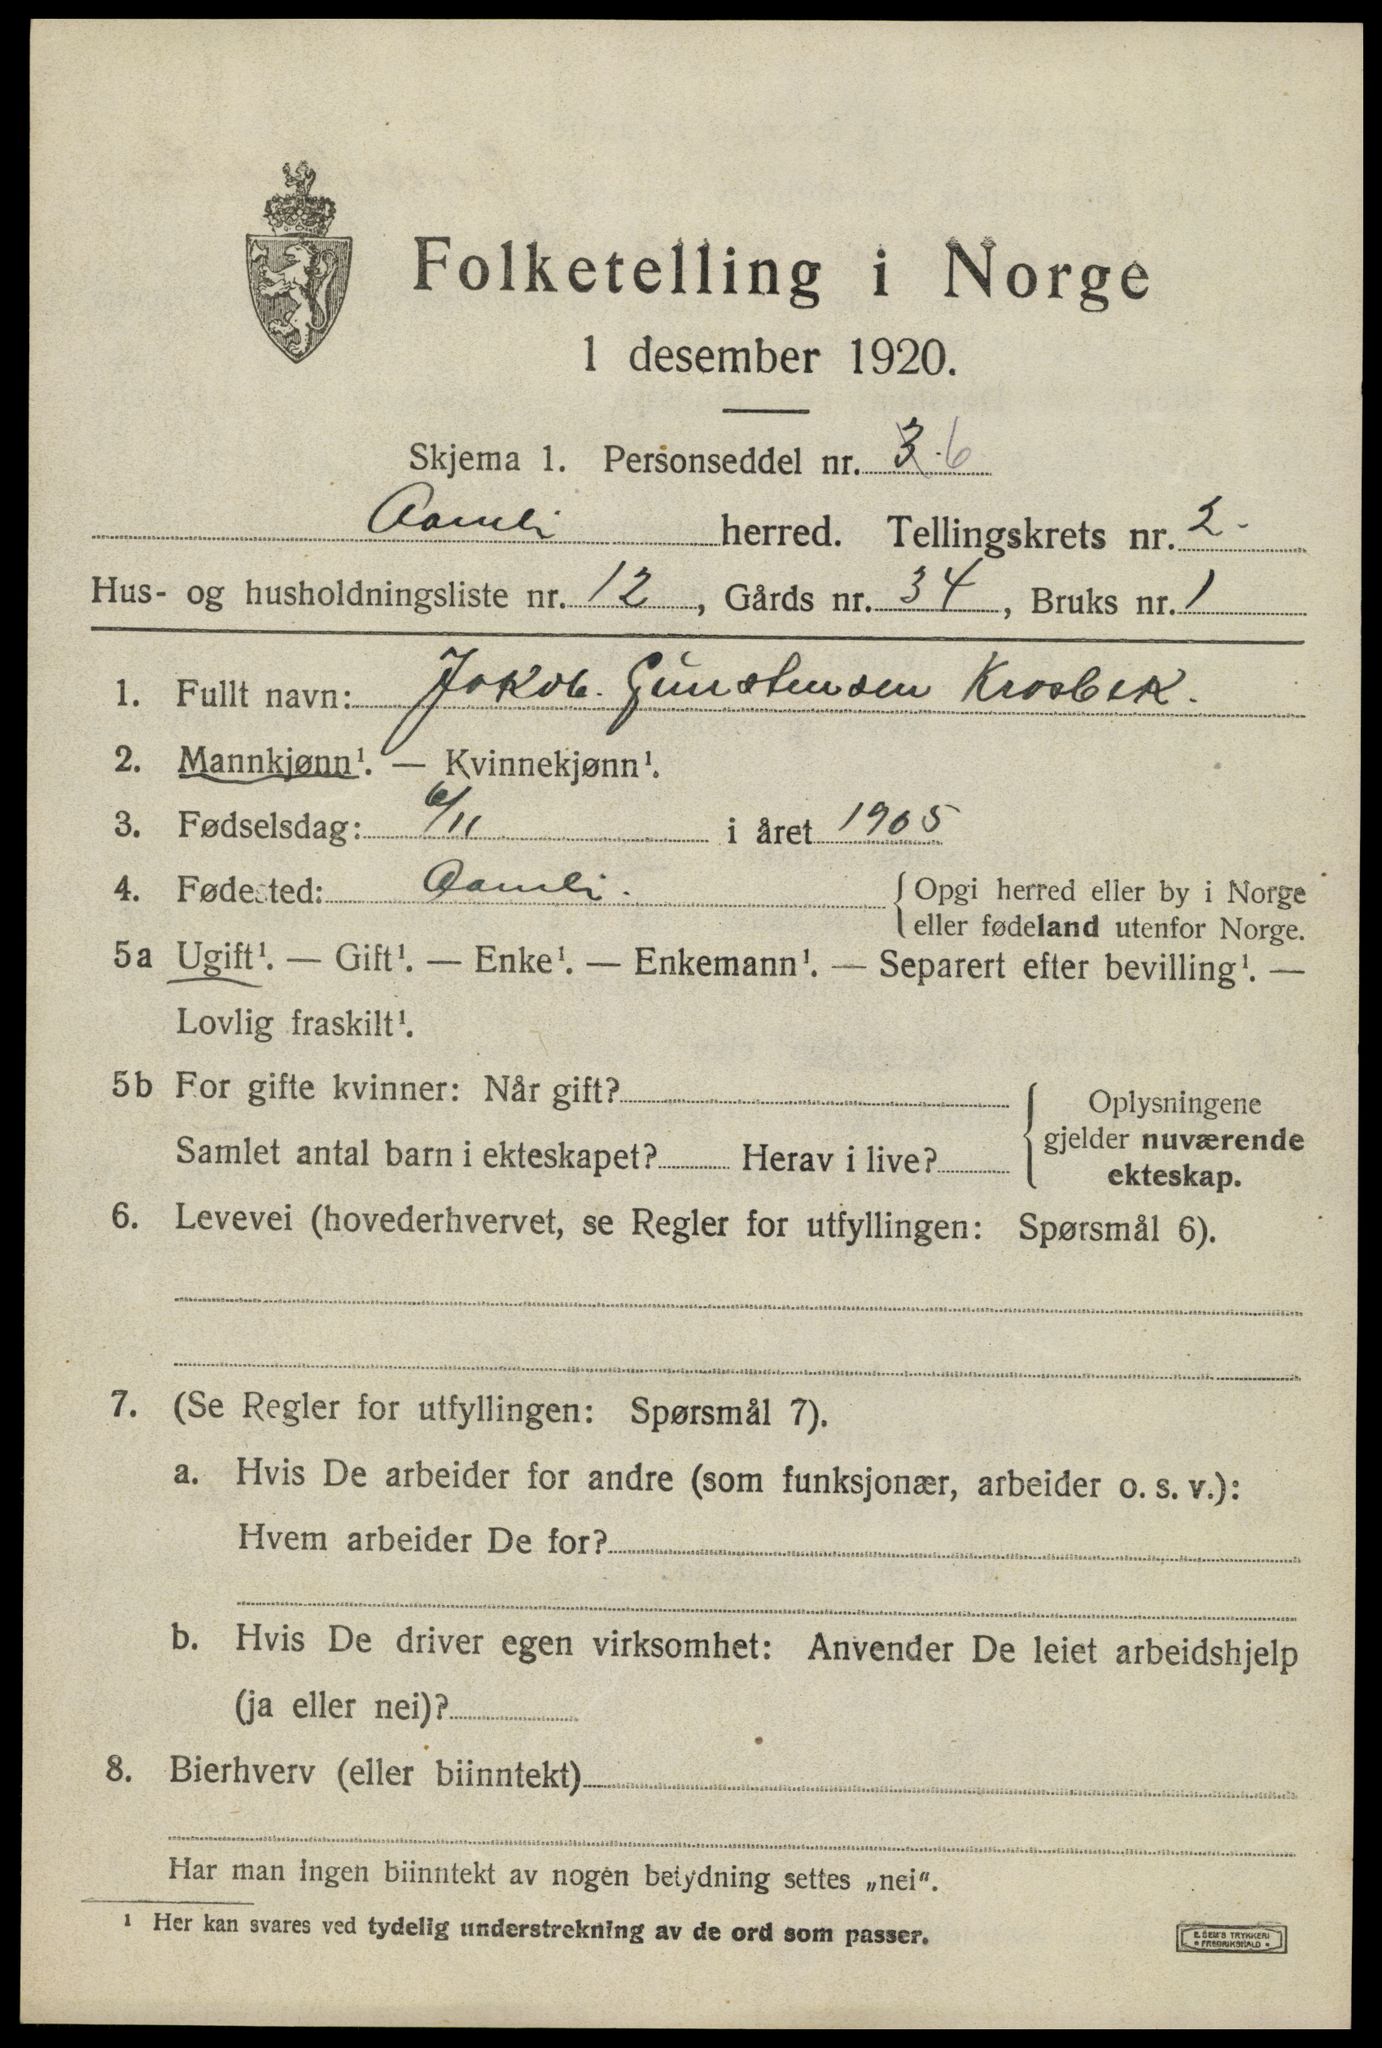 Folketelling i Norge
1 desember 1920.
Skjema 1. Personseddel nr. 3. 6
Aamli herred. Tellingskrets nr. 2.
Hus- og husholdningsliste nr. 12, Gårds nr. 34, Bruks nr. 1
1. Fullt navn: Jakob. Gunstensen Krosbek.
2. Mannkjønn¹. — Kvinnekjønn¹.
3. Fødselsdag: 6/11 i året 1905
4. Fødested: Aamli. {Opgi herred eller by i Norge
eller fødeland utenfor Norge.
5a Ugift¹. — Gift¹. — Enke¹. — Enkemann¹. — Separert efter bevilling¹. —
Lovlig fraskilt¹.
5b For gifte kvinner: Når gift?
Samlet antal barn i ekteskapet? Herav i live?
Oplysningene
gjelder nuværende
ekteskap.
6. Levevei (hovederhvervet, se Regler for utfyllingen: Spørsmål 6).
7. (Se Regler for utfyllingen: Spørsmål 7).
a. Hvis De arbeider for andre (som funksjonær, arbeider o. s. v.):
Hvem arbeider De for?
b. Hvis De driver egen virksomhet: Anvender De leiet arbeidshjelp
(ja eller nei)?
8. Bierhverv (eller biinntekt)
Har man ingen biinntekt av nogen betydning settes „nei".
¹ Her kan svares ved tydelig understrekning av de ord som passer.
E. SEM'S TRYKKERI
• FREDRIKSHALD •